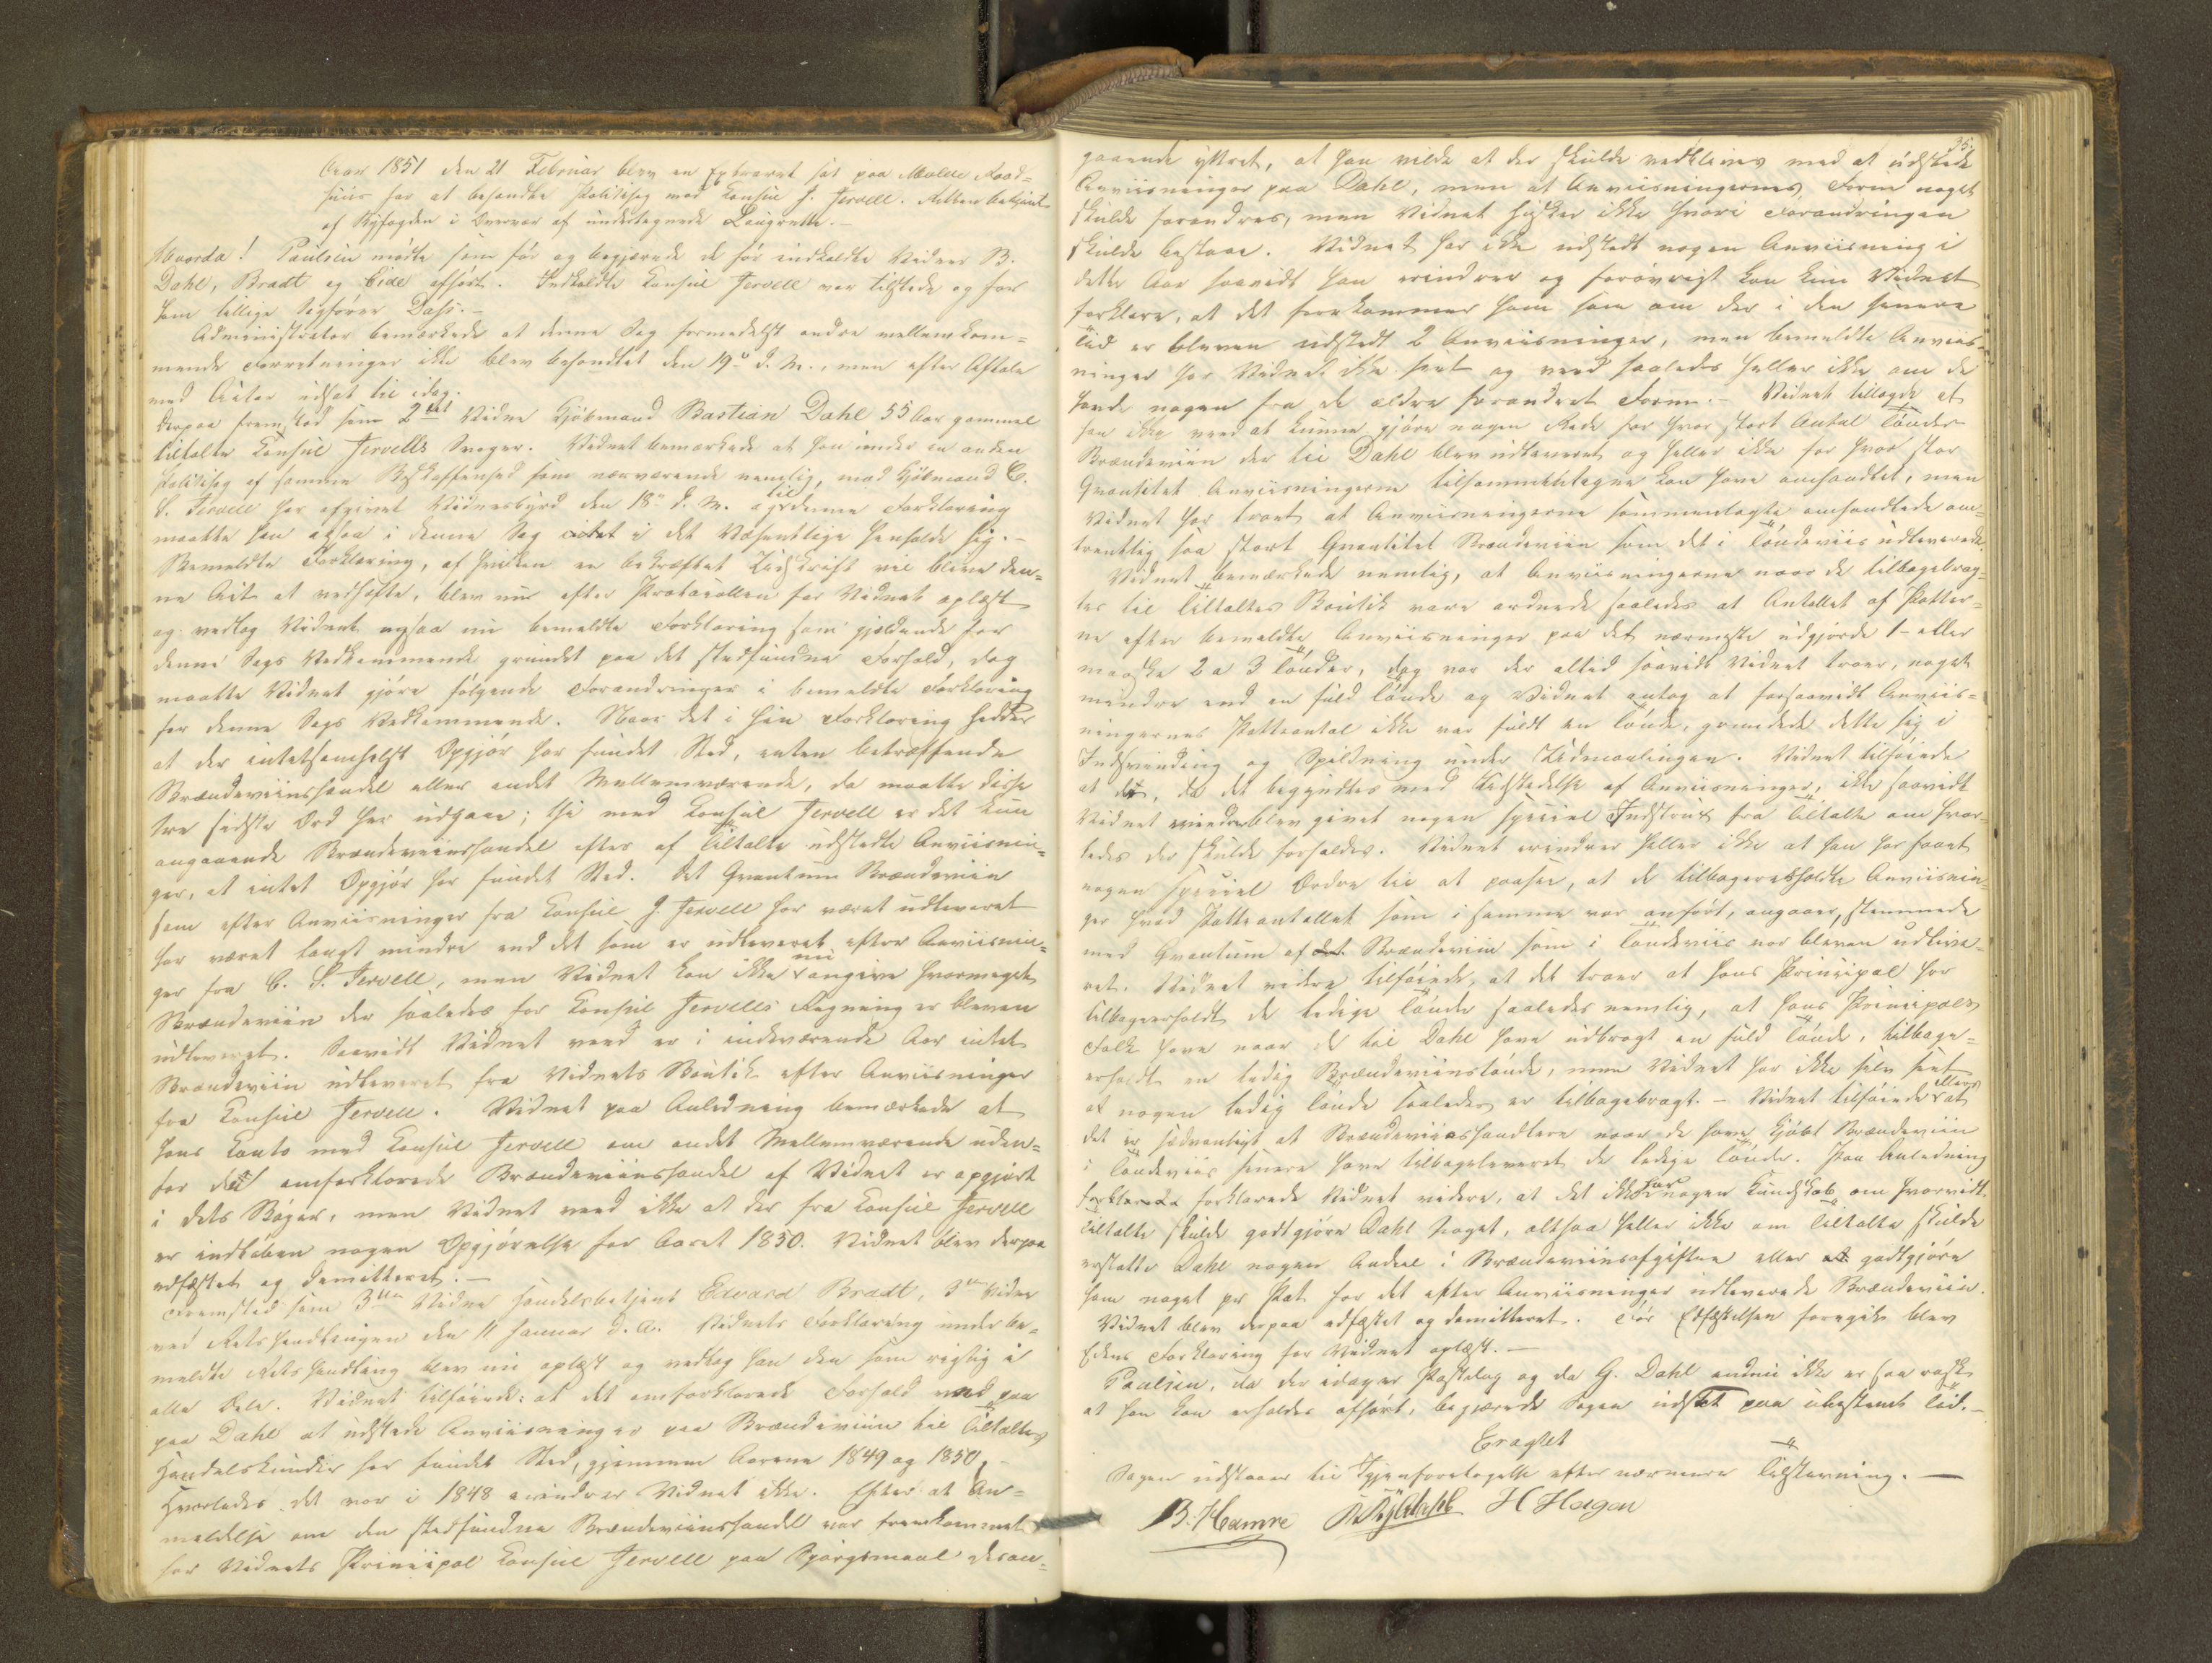 Aar 1851 den 21 Februar blev en Extraret sat paa Molde Raad-
huus for at behandle Politisag mod Consul J. Jervell. Retten betjent
af Byfogden i Overvær af undertegnede Laugrette.-
Hvorda! Paulsen mødte som før og begjærede de før indkaldte Vidner B.
Dahl, Bradt og Eide afhørt. Indkaldte Consul Jervell var tilstede og for
ham tillige Sagfører Dass.-
Administrator bemærkede at denne Sag formedelst andre mellemkom-
mende Forretninger ikke blev behandlet den 19de d. M., men efter Aftale
med Actor udsat til idag.
Derpaa fremstod som 2det Vidne Kjøbmand Bastian Dahl 55 Aar gammel
tiltalte Consul Jervells Svoger. Vidnet bemærkede at han under en anden
Politisag af samme Beskaffenhed som nærværende nemlig, mod Kjøbmand C.
S. Jervell har afgivet Vidnesbyrd den 18de d. M. og til denne Forklaring
maatte han ogsaa i denne Sag i det Væsentlige henholde sig.-
Bemeldte Forklaring, af hvilken en bekræftet Udskrift vil blive den-
ne Act at vedhefte, blev nu efter Protocollen for Vidnet oplæst
og vedtog Vidnet ogsaa nu bemeldte Forklaring som gjældende for
denne Sags Vedkommende grundet paa det stedfundne Forhold, dog
maatte Vidnet gjøre følgende Forandringer i bemeldte Forklaring
for denne Sags Vedkommende. Naar det i hiin Forklaring hedder
at der intetsomhelst Opgjør har fundet Sted, enten betræffende
Brændeviinshandel eller andet Mellemværende, da maatte disse
tre sidste Ord her udgaae; thi med Consul Jervell er det kun
angaaende Brændeviinshandel efter af Tiltalte udstedte Anviisnin-
ger, at intet Opgjør har fundet Sted. Det Qvantum Brændeviin
som efter Anviisninger fra Consul J. Jervell har været udleveret
har været langt mindre end det som er udleveret efter Anviisnin-
ger fra C. S. Jervell, men Vidnet kan ikke nu angive hvormeget
Brændeviin der saaledes for Consul Jervells Regning er bleven
udleveret. Saavidt Vidnet veed er i indeværende Aar intet
Brændeviin udleveret fra Vidnets Boutik efter Anviisninger
fra Consul Jervell. Vidnet paa Anledning bemærkede at
hans Conto med Consul Jervell om andet Mellemværende uden-
for det omforklarede Brændeviinshandel af Vidnet er opgjort
i dets Bøger, men Vidnet veed ikke at der fra Consul Jervell
er indløben nogen Opgjørelse for Aaret 1850. Vidnet blev derpaa
edfæstet og demitteret.-
Fremstod som 3die Vidne Handelsbetjent Edvard Bradt, 3die Vidne
ved Retshandlingen den 11 Januar d. A. Vidnets Forklaring under be-
meldte Retshandling blev nu oplæst og vedtog han den som rigtig i
alle Dele. Vidnet tilføiede: at det omforklarede Forhold med paa
paa Dahl at udstede Anviisninger paa Brændeviin til Tiltaltes
Handelskunder har fundet Sted, gjennem Aarene 1849 og 1850,-
Hvorledes det var i 1848 erindrer Vidnet ikke. Efter at An-
meldelse om den stedfundne Brændeviinshandel var fremkommet
har Vidnets Principal Consul Jervell paa Spørgsmaal desan-
35.
gaaende yttret, at han vilde at der skulde vedblives med at udstede
Anviisninger paa Dahl, men at Anviisningernes Form noget
skulde forandres, men Vidnet husker ikke hvori Forandringen
skulde bestaae. Vidnet har ikke udstedt nogen Anviisning i
dette Aar saavidt han erindrer og forøvrigt kan kun Vidnet
forklare, at det forekommer ham som om der i den senere
Tid er bleven udstedt 2 Anviisninger, men bemeldte Anviis-
ninger har Vidnet ikke seet og veed saaledes heller ikke om de
havde nogen fra de ældre forandret Form.- Vidnet tillagde at
han ikke veed at kunne gjøre nogen Rede for hvor stort Antal Tønder
Brændeviin der til Dahl blev udleveret og heller ikke for hvor stor
Qvantitet Anviisningerne tilsammentagne kan have omhandlet, men
Vidnet har troet at Anviisningerne sammenlagte omhandlede om-
trentlig saa stort Qvantitet Brændeviin som det i Tøndeviis udleverede.
Vidnet bemærkede nemlig, at Anviisningerne naar de tilbagebrag-
tes til Tiltaltes Boutik vare ordnede saaledes at Antallet af Potter-
ne efter bemeldte Anviisninger paa det nærmeste udgjorde 1- eller
maaske 2 a 3 Tønder, dog var der altid saavidt Vidnet troer, noget
mindre end en fuld Tønde og Vidnet antog at forsaavidt Anviis-
ningernes Potteantal ikke var fuldt en Tønde, grundede dette sig i
Indsvinding og Spildning under Udmaalingen. Vidnet tilføiede
at der, da det begyndtes med Udstedelse af Anviisninger, ikke saavidt
Vidnet erindrer blev givet nogen speciel Indstrux fra Tiltalte om hvor-
ledes der skulde forholdes. Vidnet erindrer heller ikke at han har faaet
nogen speciel Ordre til at paasee, at de tilbageerholdte Anviisnin-
ger hvad Potteantallet som i samme var anført, angaaer, stemmede
med Qvantum af Brændeviin som i Tøndeviis var bleven udleve-
ret. Vidnet videre tilføiede, at det troer at hans Principal har
tilbageerholdt de ledige Tønder saaledes nemlig, at hans Principals
Folk have naar de til Dahl have udbragt en fuld Tønde, tilbage-
erholdt en ledig Brændeviinstønde, men Vidnet har ikke selv seet
at nogen ledig Tønde saaledes er tilbagebragt.- Vidnet tilføiede ellers at
det er sædvanligt at Brændeviinshandlere naar de have kjøbt Brændeviin
i Tøndeviis senere have tilbageleveret de ledige Tønder. Paa Anledning
forklarede Vidnet videre, at det ikke har nogen Kundskab om hvorvidt
Tiltalte skulde godtgjøre Dahl Noget, altsaa heller ikke om Tiltalte skulde
erstatte Dahl nogen Andeel i Brændeviinsafgiften eller godtgjøre
ham noget pr Pot for det efter Anviisninger udleverede Brændeviin.
Vidnet blev derpaa edfæstet og demitteret. Før Edfæstelsen foregik blev
Edens Forklaring for Vidnet oplæst.-
Paulsen, da der idag er Postdag og da G. Dahl endnu ikke er saa rask
at han kan erholdes afhørt, begjærede Sagen udsat paa ubestemt Tid.-
Eragtet
Sagen udstaaer til Igjenforetagelse efter nærmere Tilstævning.-
B. Hamre H Hagen